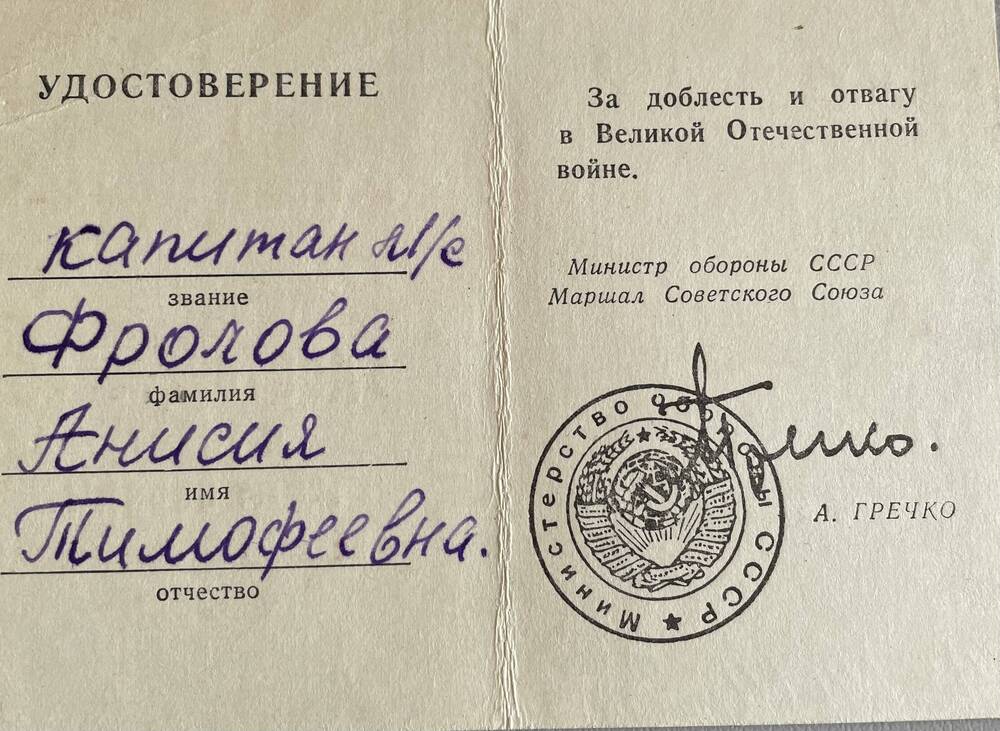 УДОСТОВЕРЕНИЕ
капитан м/с
звание
Фролова
фамилия
Анисия
имя
Тимофеевна.
отчество
За доблесть и отвагу
в Великой Отечественной
войне.
Министр обороны СССР
Маршал Советского Союза
Министерство обороны СССР
А. ГРЕЧКО